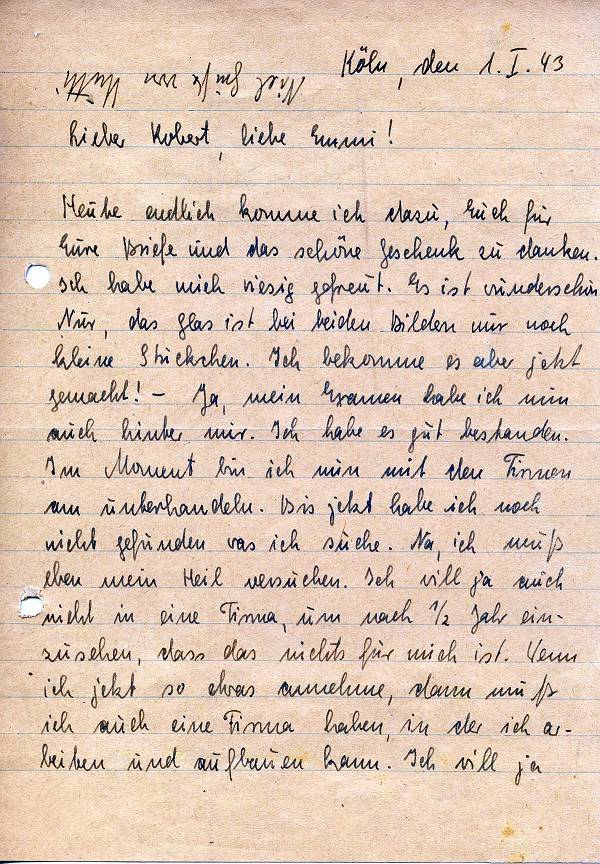 Köln, den 1.I.43
Viel Grüße von Mutti
Lieber Robert, liebe Emmi!
Heute endlich komme ich dazu, Euch für
Eure Briefe und das schöne Geschenk zu danken.
Ich habe mich riesig gefreut. Es ist wunderschön
Nur, das Glas ist bei beiden Bildern nur noch
kleine Stückchen. Ich bekomme es aber jetzt
gemacht! – Ja, mein Examen habe ich nun
auch hinter mir. Ich habe es gut bestanden.
Im Moment bin ich nun mit den Firmen
am unterhandeln. Bis jetzt habe ich noch
nicht gefunden was ich suche. Na, ich muß
eben mein Heil versuchen. Ich will ja auch
nicht in eine Firma, um nach 1/2 Jahr ein-
zusehen, dass das nichts für mich ist. Wenn
ich jetzt so etwas annehme, dann muß
ich auch eine Firma haben, in der ich ar-
beiten und aufbauen kann. Ich will ja